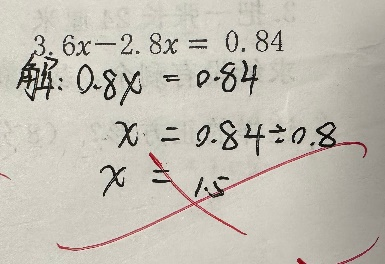 3.6x-2.8x = 0.84
解: 0.8x = 0.84
x = 0.84÷0.8
x = 1.5